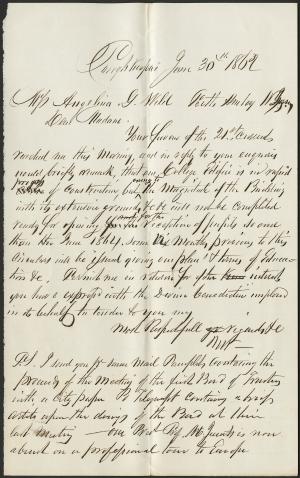 Poughkeepsie June 30th 1862
Mrs Angelina G. Weld Perth Amboy N Jersey
Dear Madam.
Your favour of the 21st
reached me this Morning, and in reply to your enquiries
would briefly remark, that our College Edifice is in rapid
progress of Construction but the Magnitude of the Building
with its extensive grounds &c &c will not be Completed
ready for opening for the Reception of pupils so soon
than 1864, some Months previous to this
Circulars will be issued giving our plans & terms of Education
&c. Permit me in return for the interest
you have expressed with the Divine benediction implored
in its behalf to tender to you my
Most Respectfull regards &c
P.S. I send you pr same Mail Pamphlets Containing the
proceedings of the Meeting of the first Board of Trustees
with a City paper Po Telegraph Containing a brief
article upon the doings of the Board at their
last meeting — our Prest Prof M Jewett is now
abroad on a professional tour to Europe